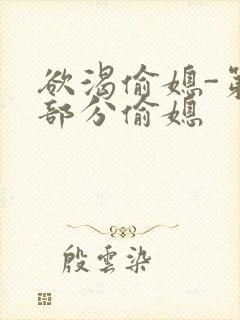 欲渴偷媳-第
部分偷媳
殷雲染